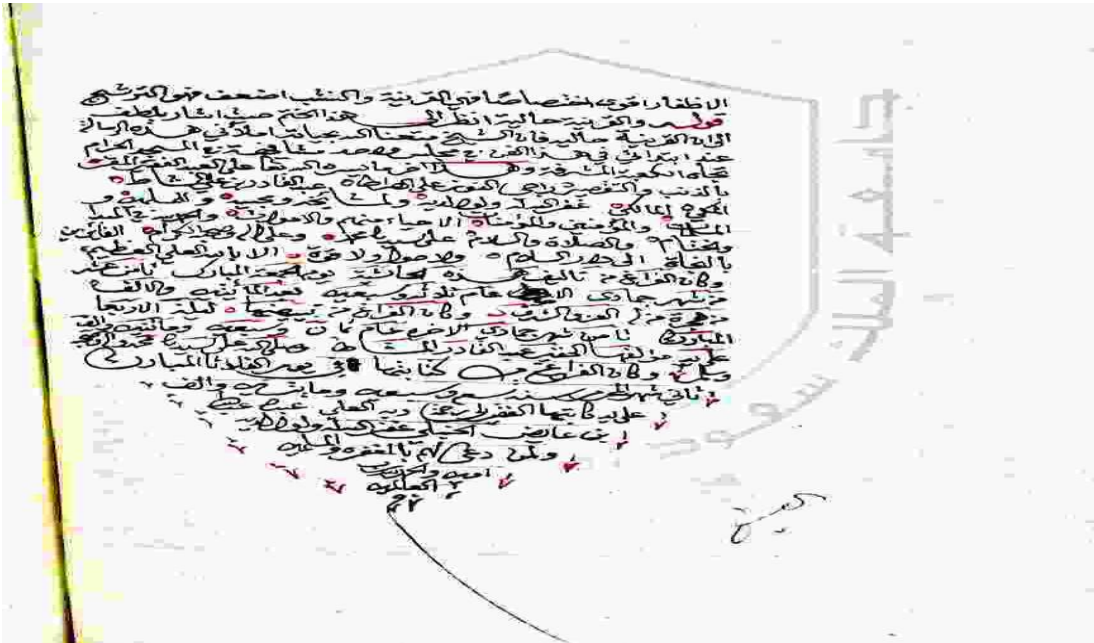 الاظفار اقوى اختصاصا في القرينة والنشب اضعف فهو الترشيح
قوله والقرينة حالية انظر الى هذا الختم حيث اشار بلطف
الى ان القرينة حالية فان الشيخ متعنا الله بحياته املا في هذه الرسالة
عند ابتدائي في هذا الفن مع جالس المسجد الحرام
تجاه الكعبة المشرفة وهذا اخر ما يسره الله تعالى على العبد الفقير المقر
بالذنب والتقصير راجي العفو عبد القادر بن علي مشاط
المكي المالكي غفر الله له ولوالديه ولمشايخه ومحبيه والمسلمين و
المسلمات والمؤمنين والمؤمنات الاحياء منهم والاموات
والصلاة والسلام على سيدنا محمد وعلى اله وصحبه الفائزين
بالنجاة الى دار السلام ولا حول ولا قوة الا بالله العلي العظيم
وكان الفراغ من تاليف هذه الحاشية يوم الجمعة المبارك ثامن عشر
من شهر جمادى عام ثلاثة وسبعين بعد المائتين والالف
من هجرة من له العز والشرف وكان الفراغ من تبييضها ليلة الاربعاء
المباركة ثامن شهر جمادى الاخر عام ثمان وسبعين ومائتين والف
على يد مؤلفها الفقير عبد القادر المشاط وصلى الله على سيدنا محمد واله وصحبه
وسلم وكان الفراغ من كتابتها في يوم الثلاثاء المبارك
ثاني شهر سنة تسع وسبعين ومايتين والف
على يد كاتبها الفقير الى رحمة ربه العلي
ابن عايض غفر الله له ولوالديه
ولمن دعى لهم بالمغفرة والمسلمين
امين والحمد لله رب
العالمين
جامعة الملك سعود